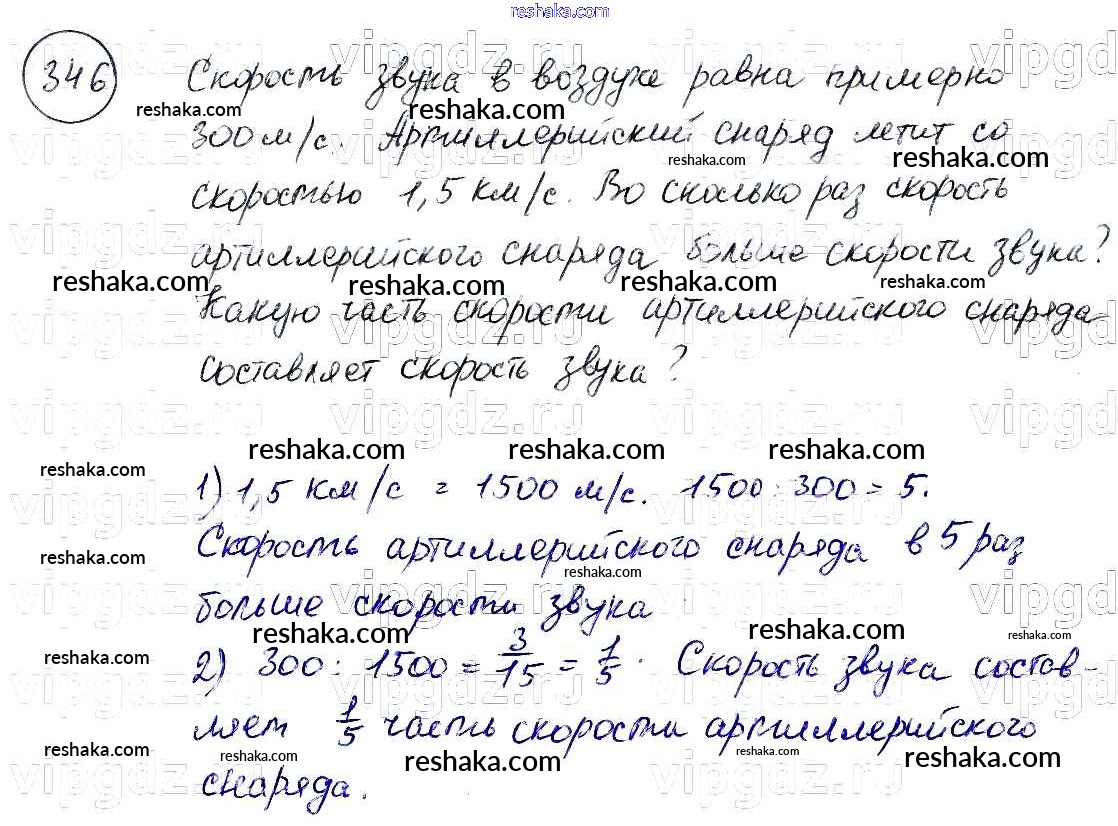 reshaka.com
346 Скорость звука в воздухе равна примерно
300 м/с. Артиллерийский снаряд летит со
скоростью 1,5 км/с. Во сколько раз скорость
артиллерийского снаряда больше скорости звука?
Какую часть скорости артиллерийского снаряда
составляет скорость звука?
1) 1,5 км/с = 1500 м/с. 1500 : 300 = 5.
Скорость артиллерийского снаряда в 5 раз
больше скорости звука
2) 300 : 1500 = 3/15 = 1/5. Скорость звука состав-
ляет 1/5 часть скорости артиллерийского
снаряда.